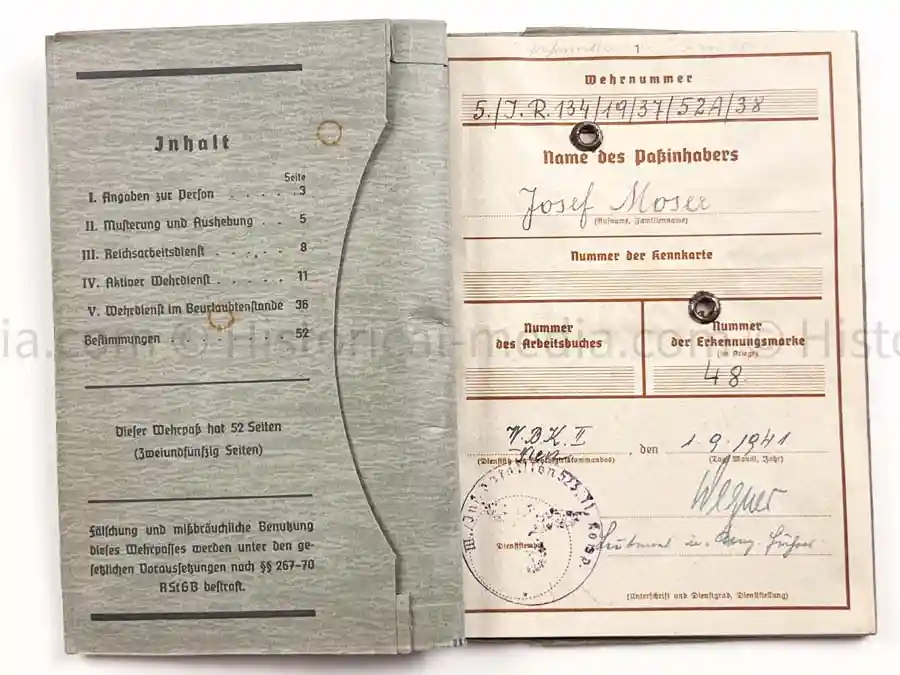 Inhalt
Seite
I. Angaben zur Person . . . . . 3
II. Musterung und Aushebung . . 5
III. Reichsarbeitsdienst . . . . . . 8
IV. Aktiver Wehrdienst . . . . . . 11
V. Wehrdienst im Beurlaubtenstande 36
Bestimmungen . . . . . . . . 52
Dieser Wehrpaß hat 52 Seiten
(Zweiundfünfzig Seiten)
Fälschung und mißbräuchliche Benutzung
dieses Wehrpasses werden unter den ge-
setzlichen Voraussetzungen nach §§ 267–70
RStGB bestraft.
1
Wehrnummer
5./J.R.134/19/37/52A/38
Name des Paßinhabers
Josef Moser
(Rufname, Familienname)
Nummer der Kennkarte
Nummer
des Arbeitsbuches
Nummer
der Erkennungsmarke
(im Kriege)
48
W.B.K. II
Wien, den 1.9.1941
(Tag, Monat, Jahr)
Wegner
Dienststempel
Leutnant u. Komp. Führer
(Unterschrift und Dienstgrad, Dienststellung)
© Historical-media.com © Histo